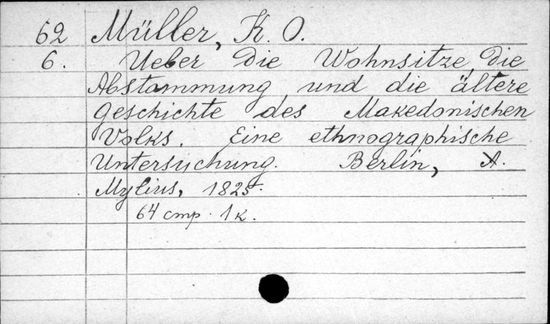 62 Müller, K. O.
6. Ueber die Wohnsitze, die
Abstammung und die ältere
Geschichte des Makedonischen
Volks. Eine ethnographische
Untersuchung. Berlin, A.
Mylius, 1825.
64 стр. 1 к.